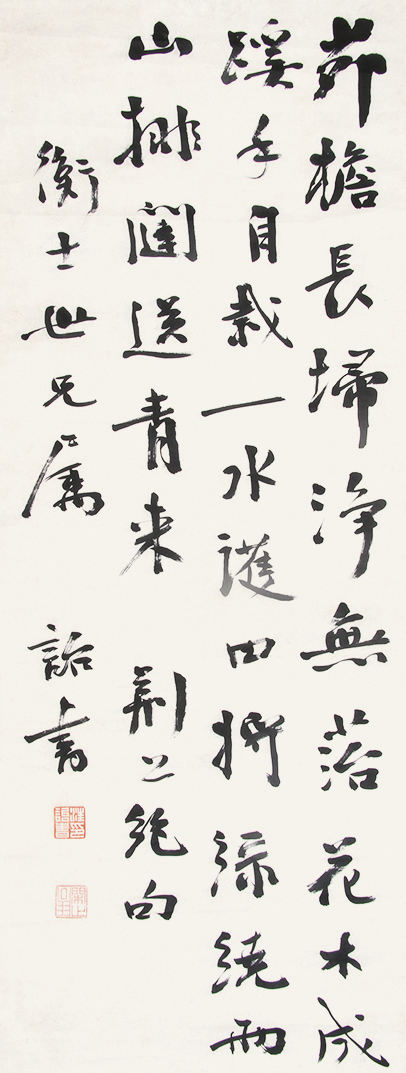 茆檐長埽淨無菭花木成
蹊手自栽一水護田將綠繞兩
山排闥送青來 荆公絶句
衡士世兄屬 詒書